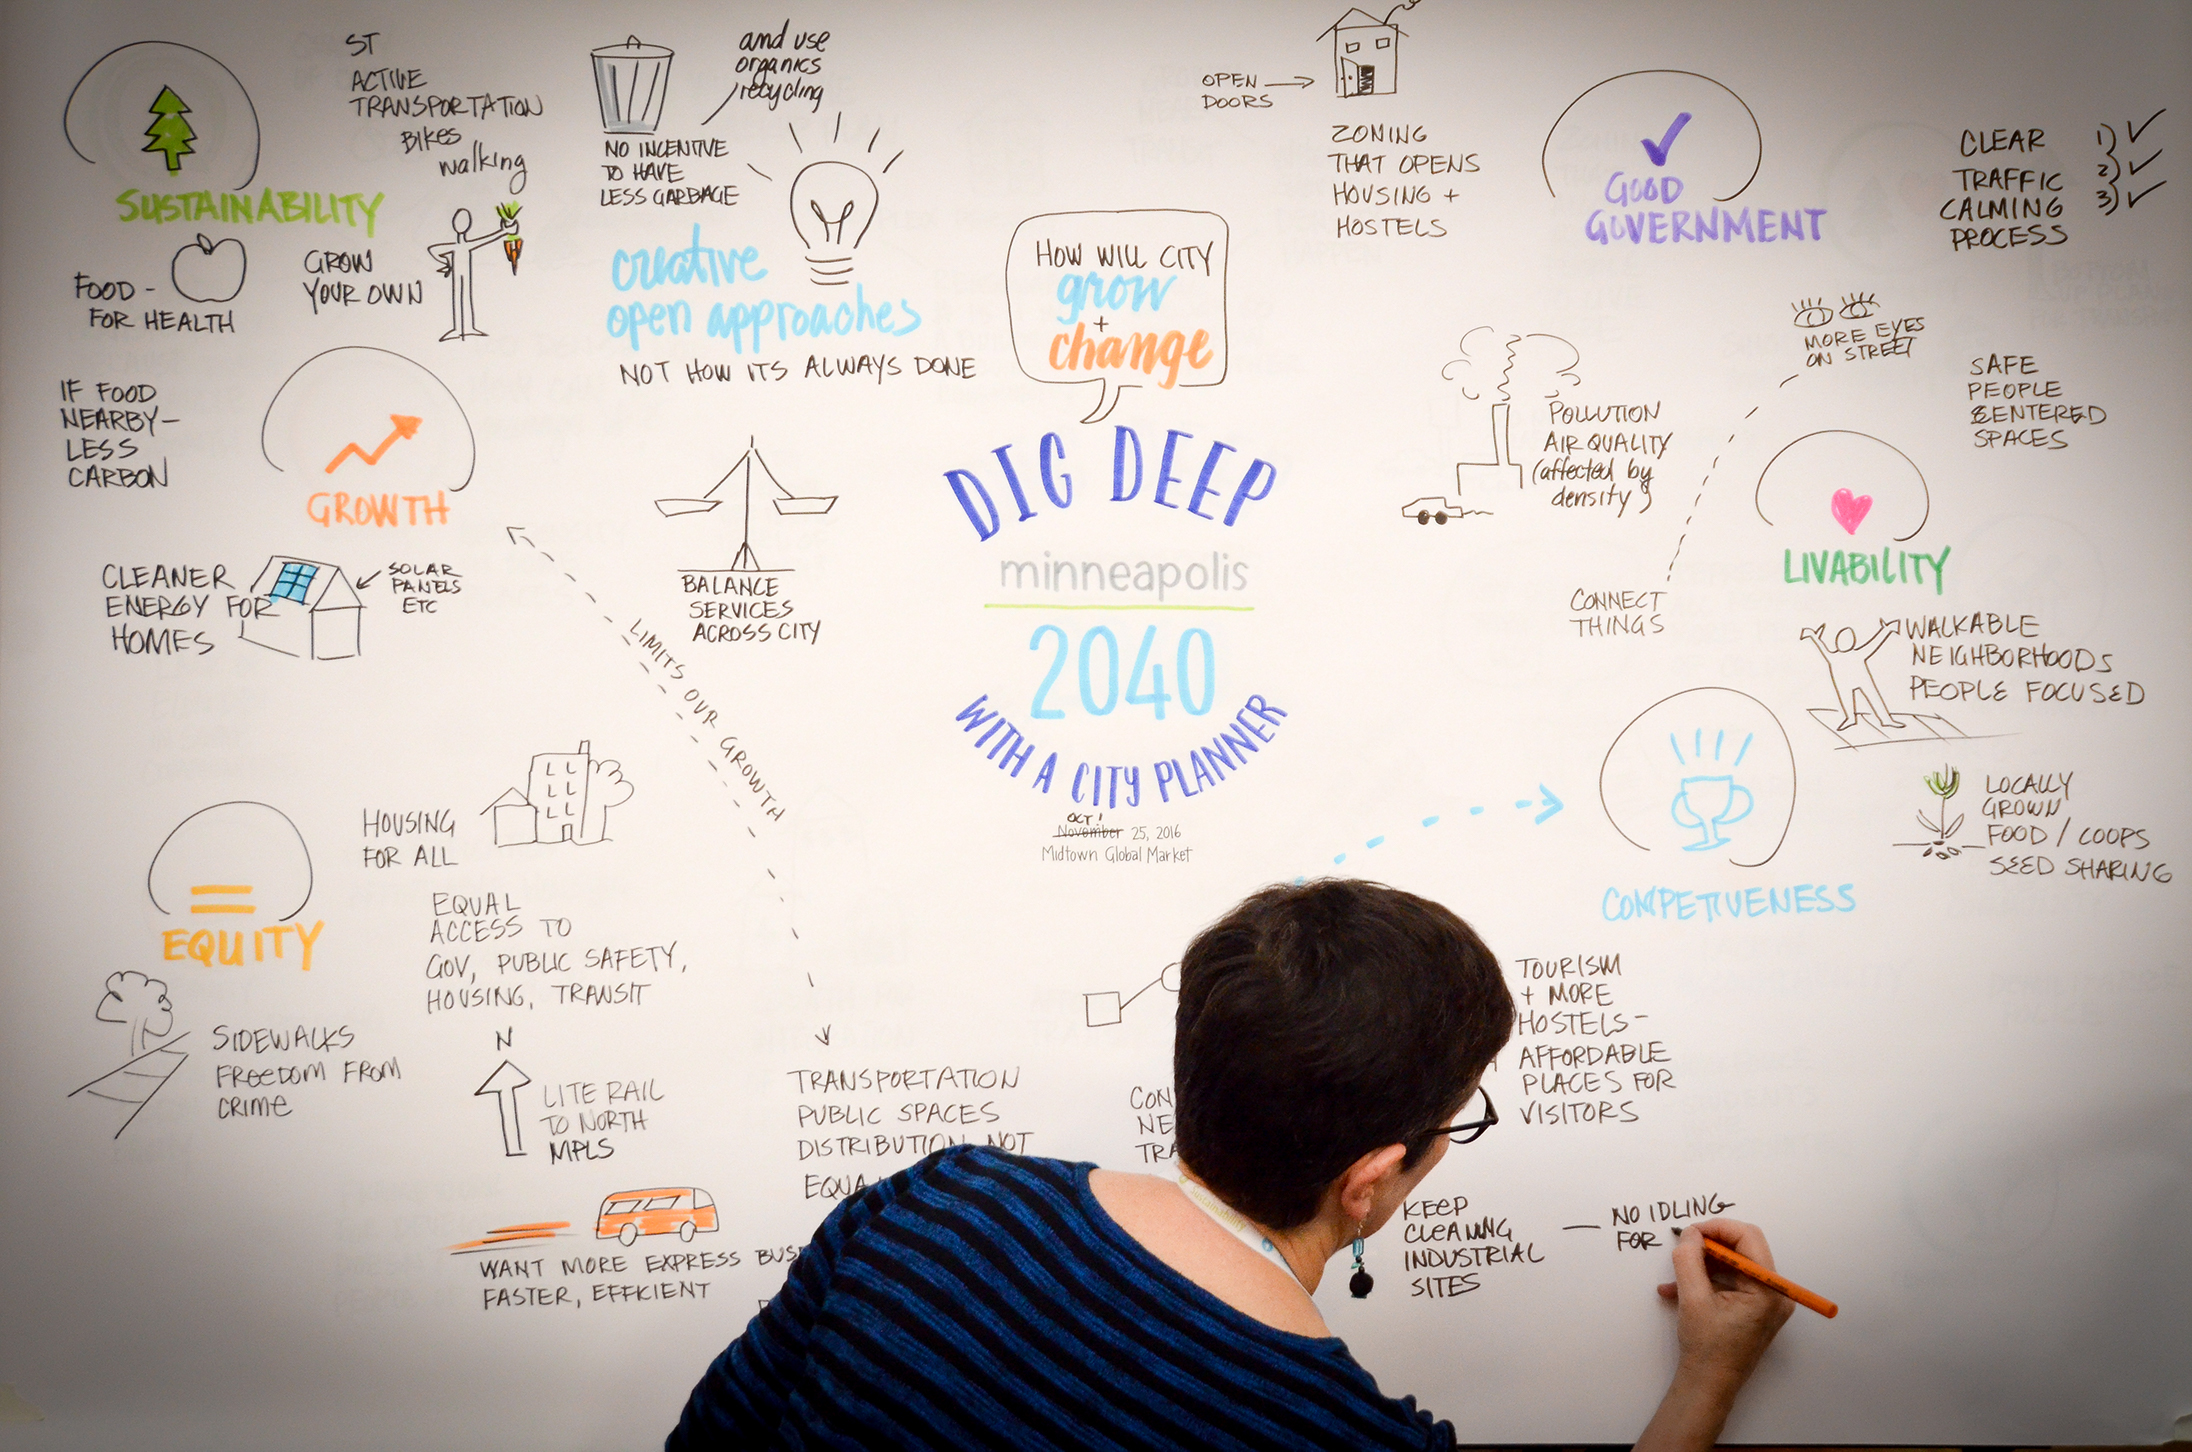 ST
ACTIVE
TRANSPORTATION
BIKES
walking
SUSTAINABILITY
FOOD -
FOR HEALTH
GROW
YOUR OWN
IF FOOD
NEARBY-
LESS
CARBON
GROWTH
CLEANER
ENERGY FOR
HOMES
SOLAR
PANELS
ETC
and use
organics
recycling
NO INCENTIVE
TO HAVE
LESS GARBAGE
creative
open approaches
NOT HOW ITS ALWAYS DONE
BALANCE
SERVICES
ACROSS CITY
LIMITS OUR GROWTH
HOW WILL CITY
grow
+
change
DIG DEEP
minneapolis
2040
WITH A CITY PLANNER
OCT!
November 25, 2016
Midtown Global Market
OPEN
DOORS
ZONING
THAT OPENS
HOUSING +
HOSTELS
GOOD
GOVERNMENT
CLEAR
TRAFFIC
CALMING
PROCESS
1) ✓
2) ✓
3) ✓
MORE EYES
ON STREET
SAFE
PEOPLE
CENTERED
SPACES
POLLUTION
AIR QUALITY
(affected by
density)
LIVABILITY
CONNECT
THINGS
WALKABLE
NEIGHBORHOODS
PEOPLE FOCUSED
LOCALLY
GROWN
FOOD / COOPS
SEED SHARING
COMPETIVENESS
TOURISM
+ MORE
HOSTELS-
AFFORDABLE
PLACES FOR
VISITORS
HOUSING
FOR ALL
EQUITY
=
EQUAL
ACCESS TO
GOV, PUBLIC SAFETY,
HOUSING, TRANSIT
SIDEWALKS
FREEDOM FROM
CRIME
N
LITE RAIL
TO NORTH
MPLS
WANT MORE EXPRESS BUS
FASTER, EFFICIENT
TRANSPORTATION
PUBLIC SPACES
DISTRIBUTION NOT
EQUA
CON
NE
TRA
KEEP
CLEANING
INDUSTRIAL
SITES
— NO IDLING
FOR
Sustainability